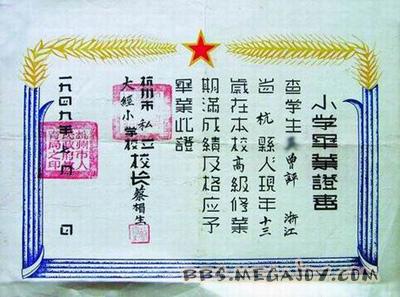 小学畢業證書
查学生 曾評 浙江
省杭縣人現年十三
歲在本校高級修業
期滿成績及格应予
畢業此證
杭州市私立
大經小学校
校长蔡相生
一九四九年七月 日
BBS.MEGAJOY.COM